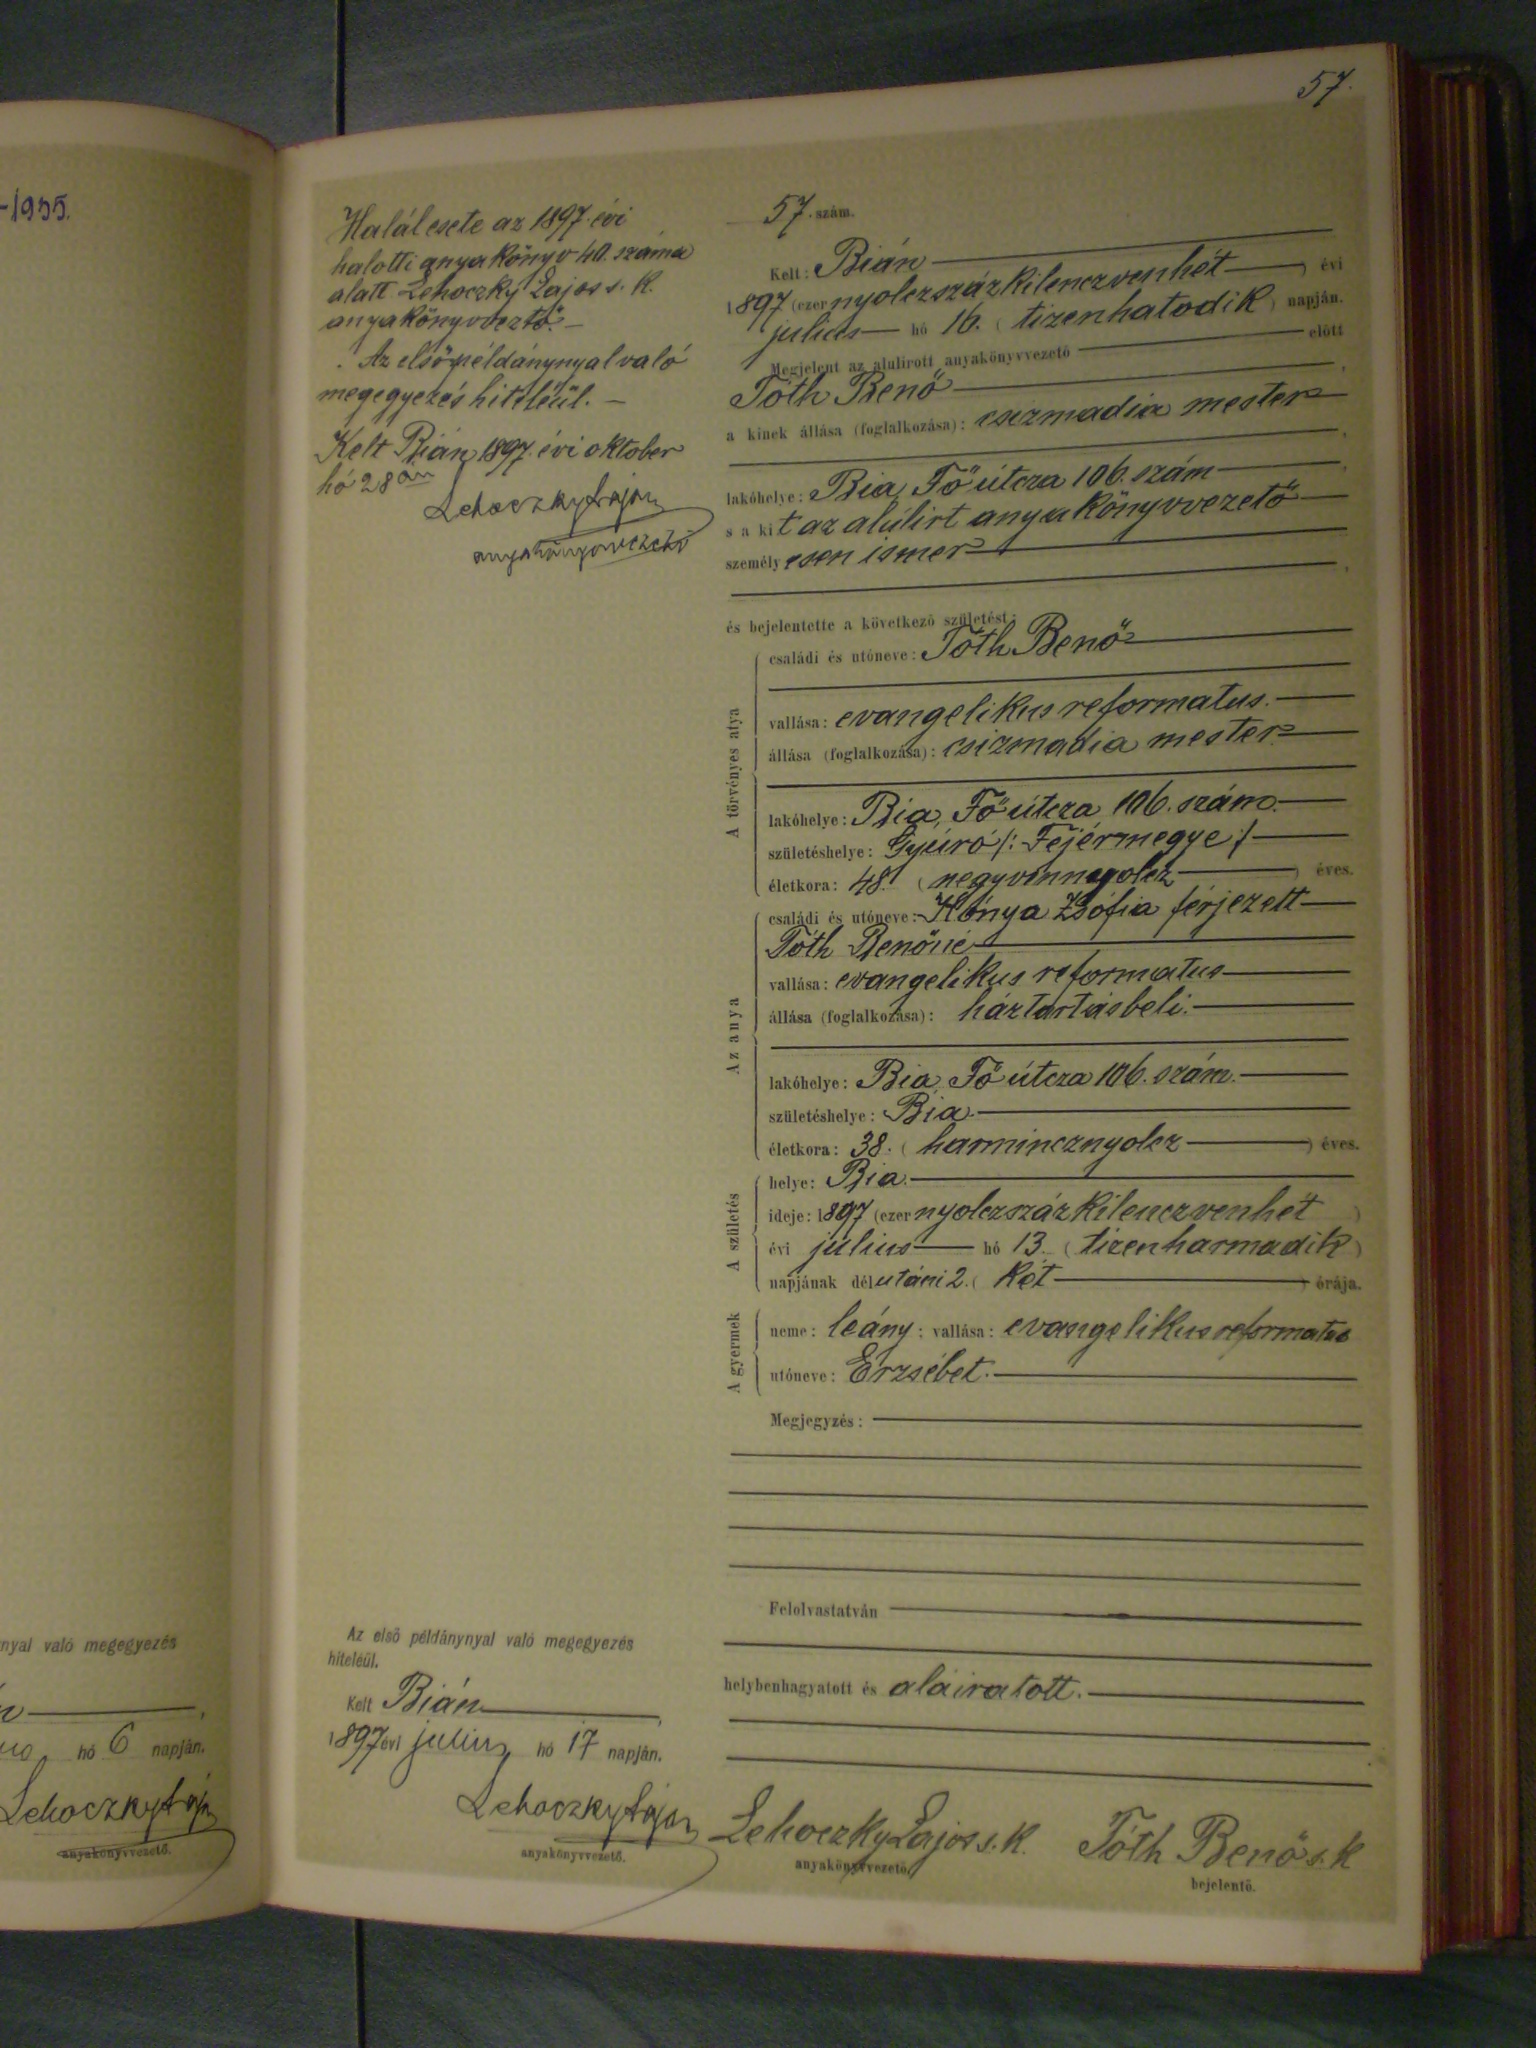 -1955.
57.
Halálesete az 1897. évi
halotti anyakönyv 40. száma
alatt. Lehoczky Lajos s. k.
anyakönyvvezető. —
Az első példánynyal való
megegyezés hiteléül. —
Kelt Bián, 1897. évi oktober
hó 28 án
Lehoczky Lajos
anyakönyvvezető
57. szám.
Kelt: Bián
1897 (ezer nyolczszáz kilenczvenhét) évi
julius hó 16. (tizenhatodik) napján.
Megjelent az alulirott anyakönyvvezető előtt
Tóth Benő
a kinek állása (foglalkozása): csizmadia mester
lakóhelye: Bia, Fő útcza 106. szám
s a kit az alúlirt anyakönyvvezető
személyesen ismer
és bejelentette a következő születést:
A törvényes atya
családi és utóneve: Tóth Benő
vallása: evangelikus reformatus.
állása (foglalkozása): csizmadia mester
lakóhelye: Bia, Fő útcza 106. szám.
születéshelye: Gyúró /: Fejérmegye :/
életkora: 48. (negyvennyolcz) éves.
Az anya
családi és utóneve: Kónya Zsófia férjezett
Tóth Benőné
vallása: evangelikus reformatus
állása (foglalkozása): háztartásbeli.
lakóhelye: Bia, Fő útcza 106. szám.
születéshelye: Bia.
életkora: 38. (harmincznyolcz) éves.
A születés
helye: Bia.
ideje: 1897 (ezer nyolczszáz kilenczvenhét)
évi julius hó 13. (tizenharmadik)
napjának délutáni 2. (két) órája.
A gyermek
neme: leány; vallása: evangelikus reformatus
utóneve: Erzsébet.
Megjegyzés:
Felolvastatván
helybenhagyatott és aláiratott.
Az első példánynyal való megegyezés
hiteléül.
Kelt Bián
1897 évi julius hó 17 napján.
Lehoczky Lajos
anyakönyvvezető.
Lehoczky Lajos s. k.
anyakönyvvezető.
Tóth Benő s. k
bejelentő.
nyal való megegyezés
hó 6 napján.
Lehoczky Lajos
anyakönyvvezető.